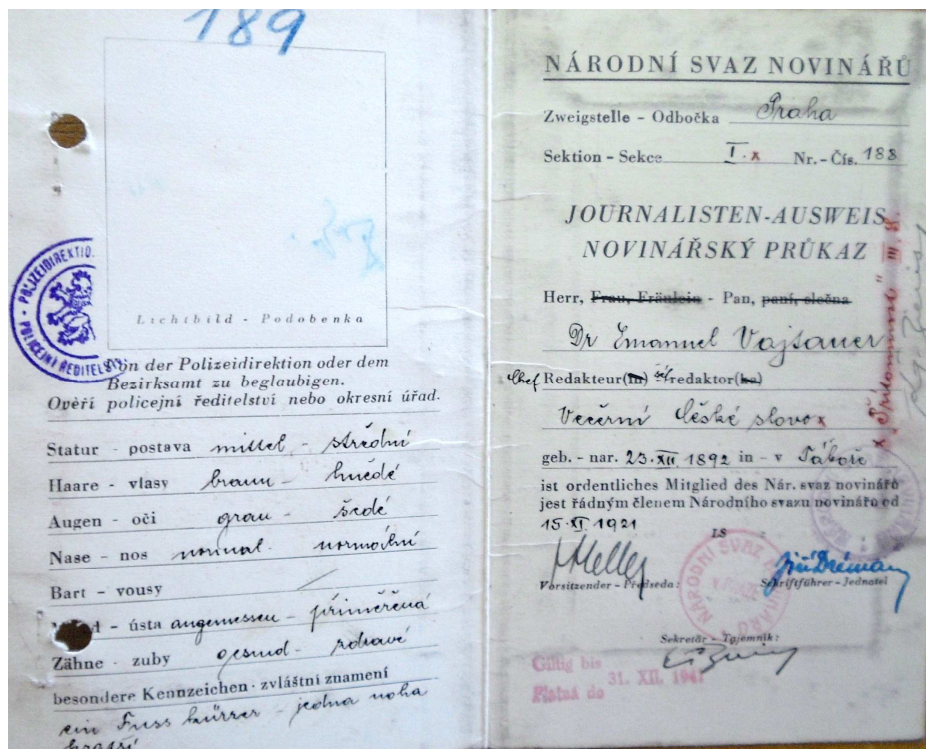 189
Lichtbild - Podobenka
POLIZEIDIREKTIO
POLICEJNÍ ŘEDITELS
Von der Polizeidirektion oder dem
Bezirksamt zu beglaubigen.
Ověří policejní ředitelství nebo okresní úřad.
Statur - postava mittel - střední
Haare - vlasy braun - hnědé
Augen - oči grau - šedé
Nase - nos normal - normální
Bart - vousy
- ústa angemessen - přiměřená
Zähne - zuby gesund - zdravé
besondere Kennzeichen - zvláštní znamení
ein Fuss kürzer - jedna noha
kratší
NÁRODNÍ SVAZ NOVINÁŘŮ
Zweigstelle - Odbočka Praha
Sektion - Sekce I. x Nr. - Čís. 188
JOURNALISTEN-AUSWEIS
NOVINÁŘSKÝ PRŮKAZ
Herr, Frau, Fräulein - Pan, paní, slečna
Dr Emanuel Vajtauer
Chef Redakteur(in) šéfredaktor(ka)
Večerní České slovo x
geb. - nar. 23. XII. 1892 in - v Táboře
ist ordentliches Mitglied des Nár. svaz novinářů
jest řádným členem Národního svazu novinářů od
15. XI. 1921
LS
Vorsitzender - Předseda: Schriftführer - Jednatel
NÁRODNÍ SVAZ
Sekretär - Tajemník:
Gültig bis
31. XII. 1941
Platná do
x "Přítomnost"